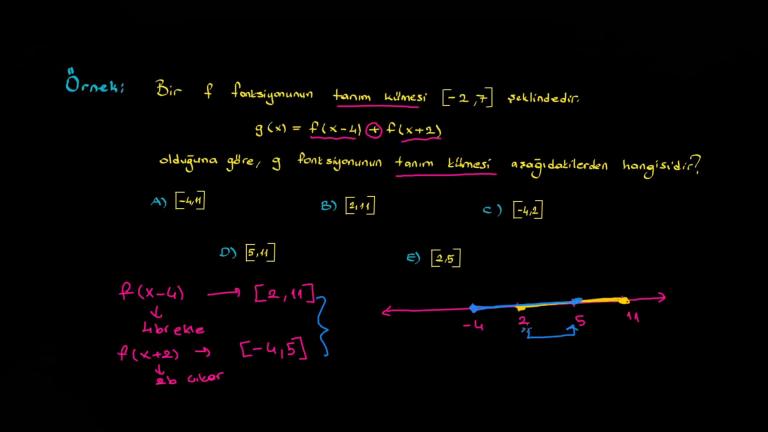 Örnek: Bir f fonksiyonunun tanım kümesi [-2,7] şeklindedir.
g(x) = f(x-4) + f(x+2)
olduğuna göre, g fonksiyonunun tanım kümesi aşağıdakilerden hangisidir?
A) [-4,11] B) [2,11] C) [-4,2]
D) [5,11] E) [2,5]
f(x-4) → [2,11]
↓
4br ekle
f(x+2) → [-4,5]
↓
2b çıkar
-4 2 5 11